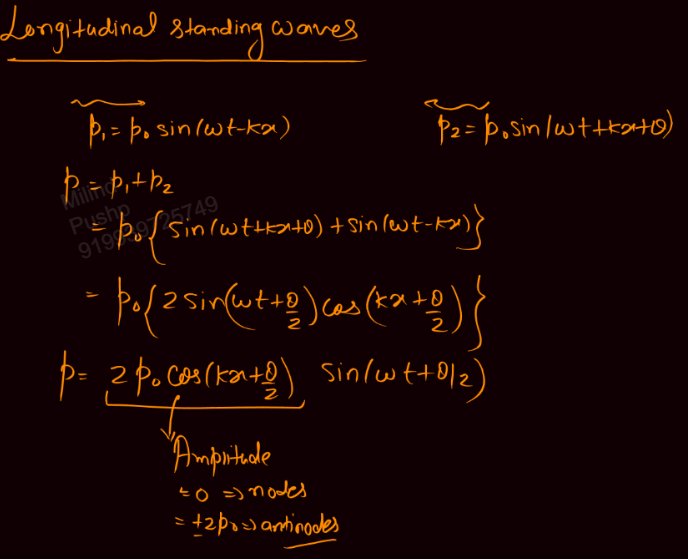 Longitudinal standing waves
p₁ = p₀ sin(ωt-kx)
p₂ = p₀ sin(ωt+kx+θ)
p = p₁+p₂
= p₀{sin(ωt+kx+θ) + sin(ωt-kx)}
= p₀{2 sin(ωt+θ/2) cos(kx+θ/2)}
p = 2 p₀ cos(kx+θ/2) sin(ωt+θ/2)
Amplitude
= 0 => nodes
= ±2p₀ => antinodes
Milind
Pushp